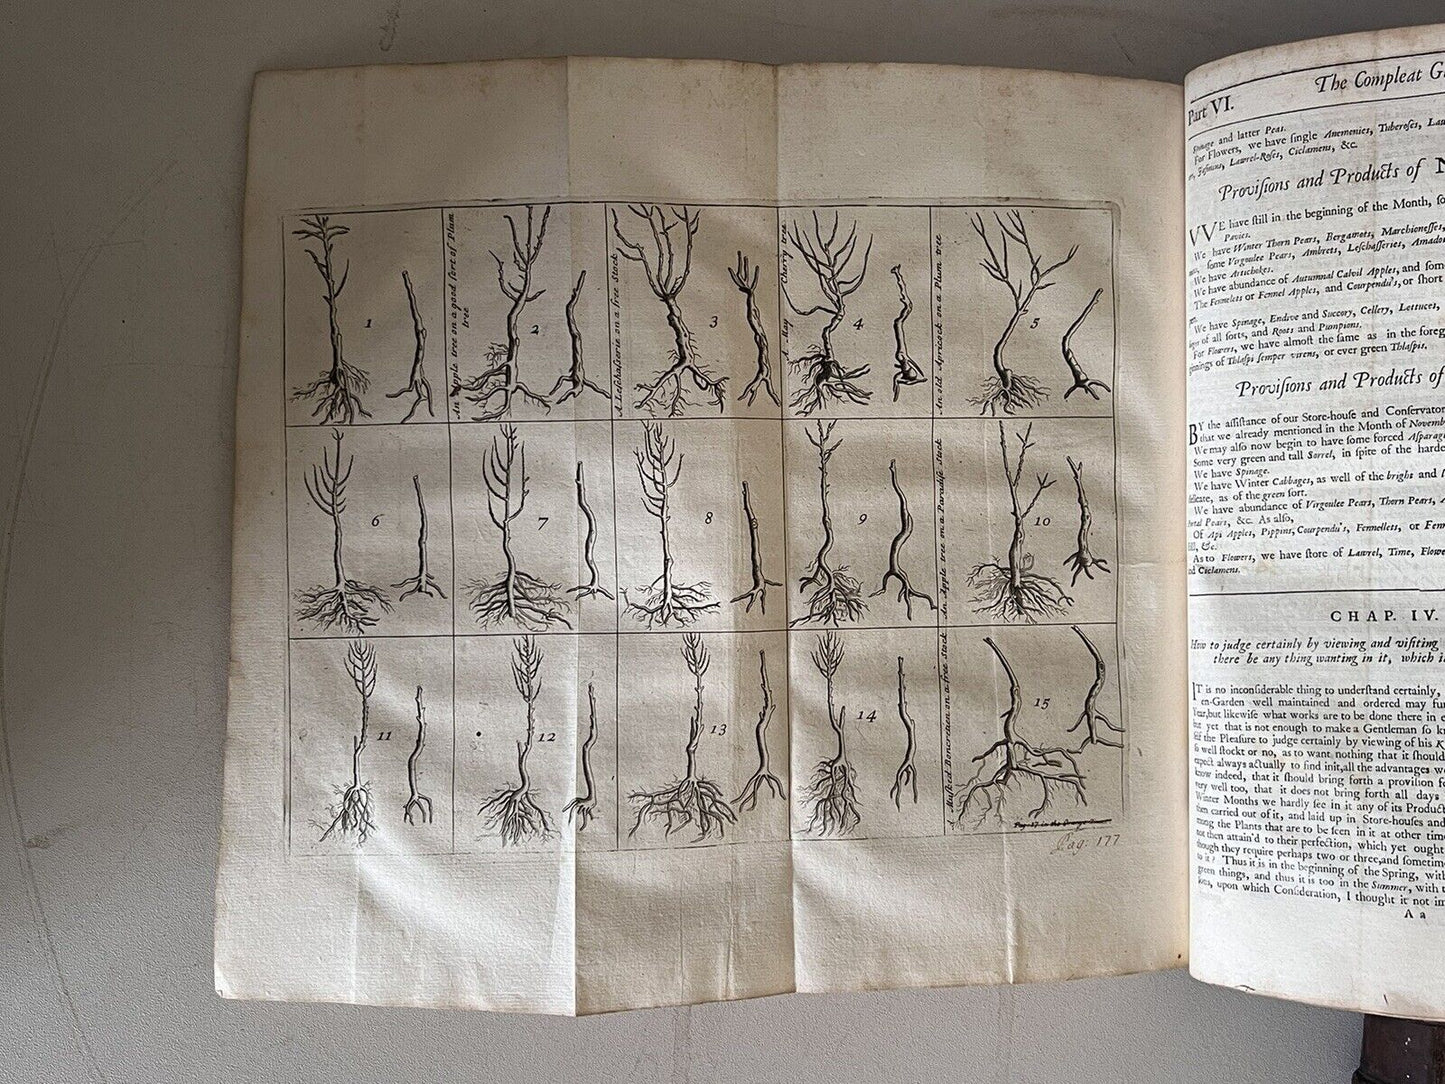 1
An Apple tree on a good sort of Plum
tree
2
A Leschasserie on a free Stock
3
A May Cherry tree
4
An old Apricock on a Plum tree
5
6
7
8
9
An Apple tree on a Paradise Stock
10
11
12
13
14
A Musked Boncretien on a free Stock
15
Pag: 177
Part VI.
The Compleat G
and latter Peas.
For Flowers, we have ſingle Anemonies, Tuberoſes, Lau
Laurel-Roſes, Ciclamens, &c.
Proviſions and Products of N
WE have ſtill in the beginning of the Month, ſo
Pavies.
We have Winter Thorn Pears, Bergamots, Marchioneſſes,
ſome Virgoulee Pears, Ambrets, Leſchaſſeries, Amado
We have Artichokes.
We have abundance of Autumnal Calvil Apples, and ſom
The Fennelets or Fennel Apples, and Courpendu's, or ſhort
We have Spinage, Endive and Succory, Cellery, Lettuces,
of all ſorts, and Roots and Pumpions.
For Flowers, we have almoſt the ſame as in the foreg
of Thlaſpi ſemper virens, or ever green Thlaſpis.
Proviſions and Products of
BY the aſſiſtance of our Store-houſe and Conſervator
that we already mentioned in the Month of Novemb
We may alſo now begin to have ſome forced Aſparag
Some very green and tall Sorrel, in ſpite of the harde
We have Spinage.
We have Winter Cabbages, as well of the bright and
as of the green ſort.
We have abundance of Virgoulee Pears, Thorn Pears, A
Pears, &c. As alſo,
Of Api Apples, Pippins, Courpendu's, Fennellets, or Fenn
&c.
As to Flowers, we have ſtore of Laurel, Time, Flowe
Ciclamens.
CHAP. IV.
How to judge certainly by viewing and viſiting
there be any thing wanting in it, which i
IT is no inconſiderable thing to underſtand certainly,
en-Garden well maintained and ordered may fur
Year, but likewiſe what works are to be done there in e
but yet that is not enough to make a Gentleman ſo k
the Pleaſure to judge certainly by viewing of his K
ſo well ſtockt or no, as to want nothing that it ſhould
expect always actually to find in it, all the advantages w
know indeed, that it ſhould bring forth a proviſion f
very well too, that it does not bring forth all days
Winter Months we hardly ſee in it any of its Produc
then carried out of it, and laid up in Store-houſes and
among the Plants that are to be ſeen in it at other tim
not then attain'd to their perfection, which yet ought
though they require perhaps two or three, and ſometim
to it? Thus it is in the beginning of the Spring, with
green things, and thus it is too in the Summer, with
upon which Conſideration, I thought it not im
A a